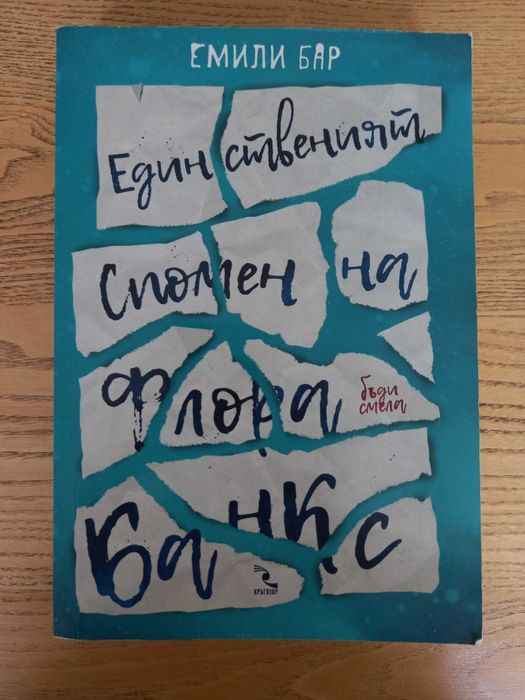 ЕМИЛИ БАР
Единственият
Спомен на
Флора
бъди
смела
Банкс
КРЪГОЗОР